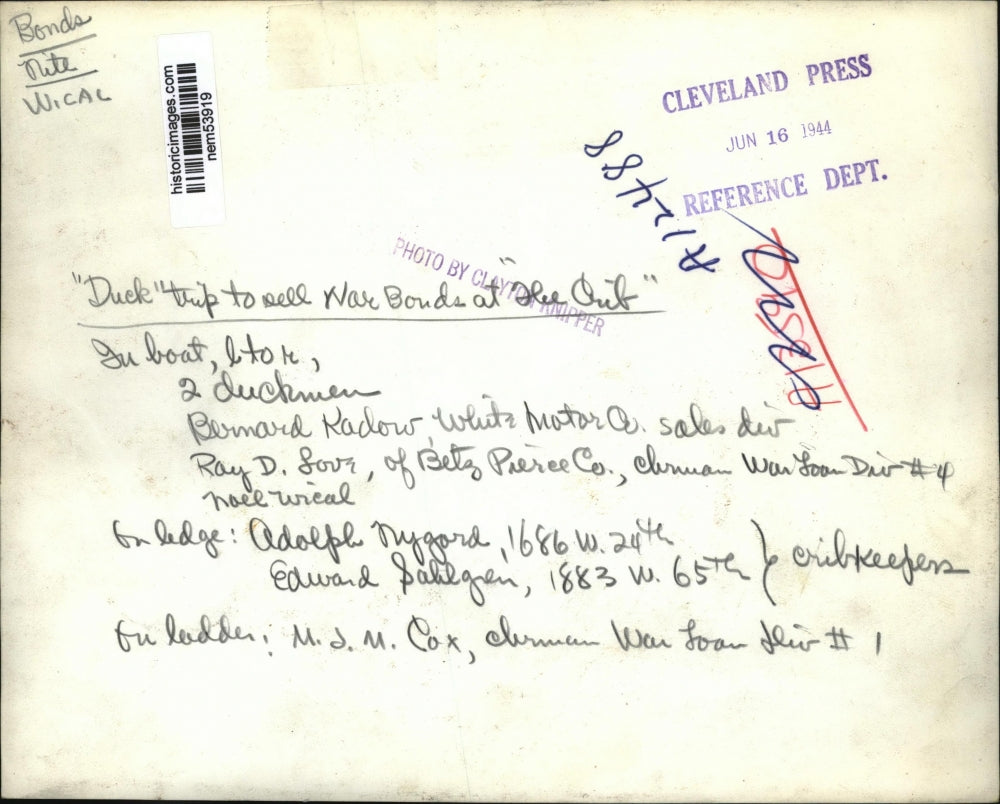 Bonds
Nite
WICAL
historicimages.com
nem53919
CLEVELAND PRESS
JUN 16 1944
REFERENCE DEPT.
A12488
PHOTO BY CLAYTON KNIPPER
"Duck" trip to sell War Bonds at "The Crib"
In boat, l to r,
2 duckmen
Bernard Kadow, White Motor Co. sales div
Ray D. Love, of Betz Pierce Co., chrman War Loan Div #4
Noel Wical
On ledge: Adolph Nygord, 1686 W. 24th
Edward Sahlgren, 1883 W. 65th } cribkeepers
On ladder: M. J. M. Cox, chrman War Loan Div # 1